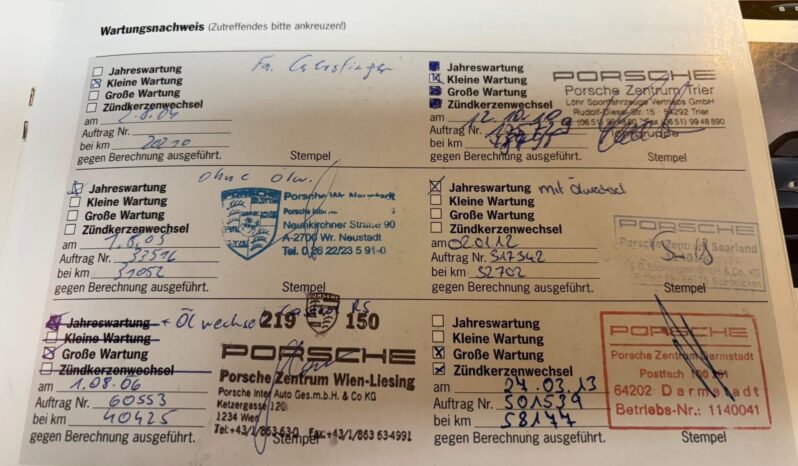 Wartungsnachweis (Zutreffendes bitte ankreuzen!)
Jahreswartung
Kleine Wartung
Große Wartung
Zündkerzenwechsel
am
Auftrag Nr.
bei km 20210
gegen Berechnung ausgeführt. Stempel
Fa.
Jahreswartung
Kleine Wartung
Große Wartung
Zündkerzenwechsel
am 12.10.10
Auftrag Nr.
bei km
gegen Berechnung ausgeführt. Stempel
PORSCHE
Porsche Zentrum Trier
Löhr Sportfahrzeuge Vertriebs GmbH
Rudolf-Diesel-Str. 15 54292 Trier
ohne Ölw.
Jahreswartung
Kleine Wartung
Große Wartung
Zündkerzenwechsel
am 1.8.05
Auftrag Nr. 33516
bei km 31052
gegen Berechnung ausgeführt. Stempel
Porsche Wr. Neustadt
Neunkirchner Straße 90
A-2700 Wr. Neustadt
Tel. 0 26 22/23 5 91-0
Jahreswartung mit Ölwechsel
Kleine Wartung
Große Wartung
Zündkerzenwechsel
am 020112
Auftrag Nr. 317342
bei km 52702
gegen Berechnung ausgeführt. Stempel
PORSCHE
Porsche Zentrum Saarland
Jahreswartung + Ölwechsel
Kleine Wartung
Große Wartung
Zündkerzenwechsel
am 1.08.06
Auftrag Nr. 60553
bei km 40425
gegen Berechnung ausgeführt. Stempel
219 PORSCHE 150
PORSCHE
Porsche Zentrum Wien-Liesing
Porsche Inter Auto Ges.m.b.H. & Co KG
Ketzergasse 120
1234 Wien
Tel:+43/1/863 63-0 Fax:+43/1/863 63-4991
Jahreswartung
Kleine Wartung
Große Wartung
Zündkerzenwechsel
am 24.03.13
Auftrag Nr. 501539
bei km 58177
gegen Berechnung ausgeführt. Stempel
PORSCHE
Porsche Zentrum Darmstadt
Postfach
64202 Darmstadt
Betriebs-Nr.: 1140041